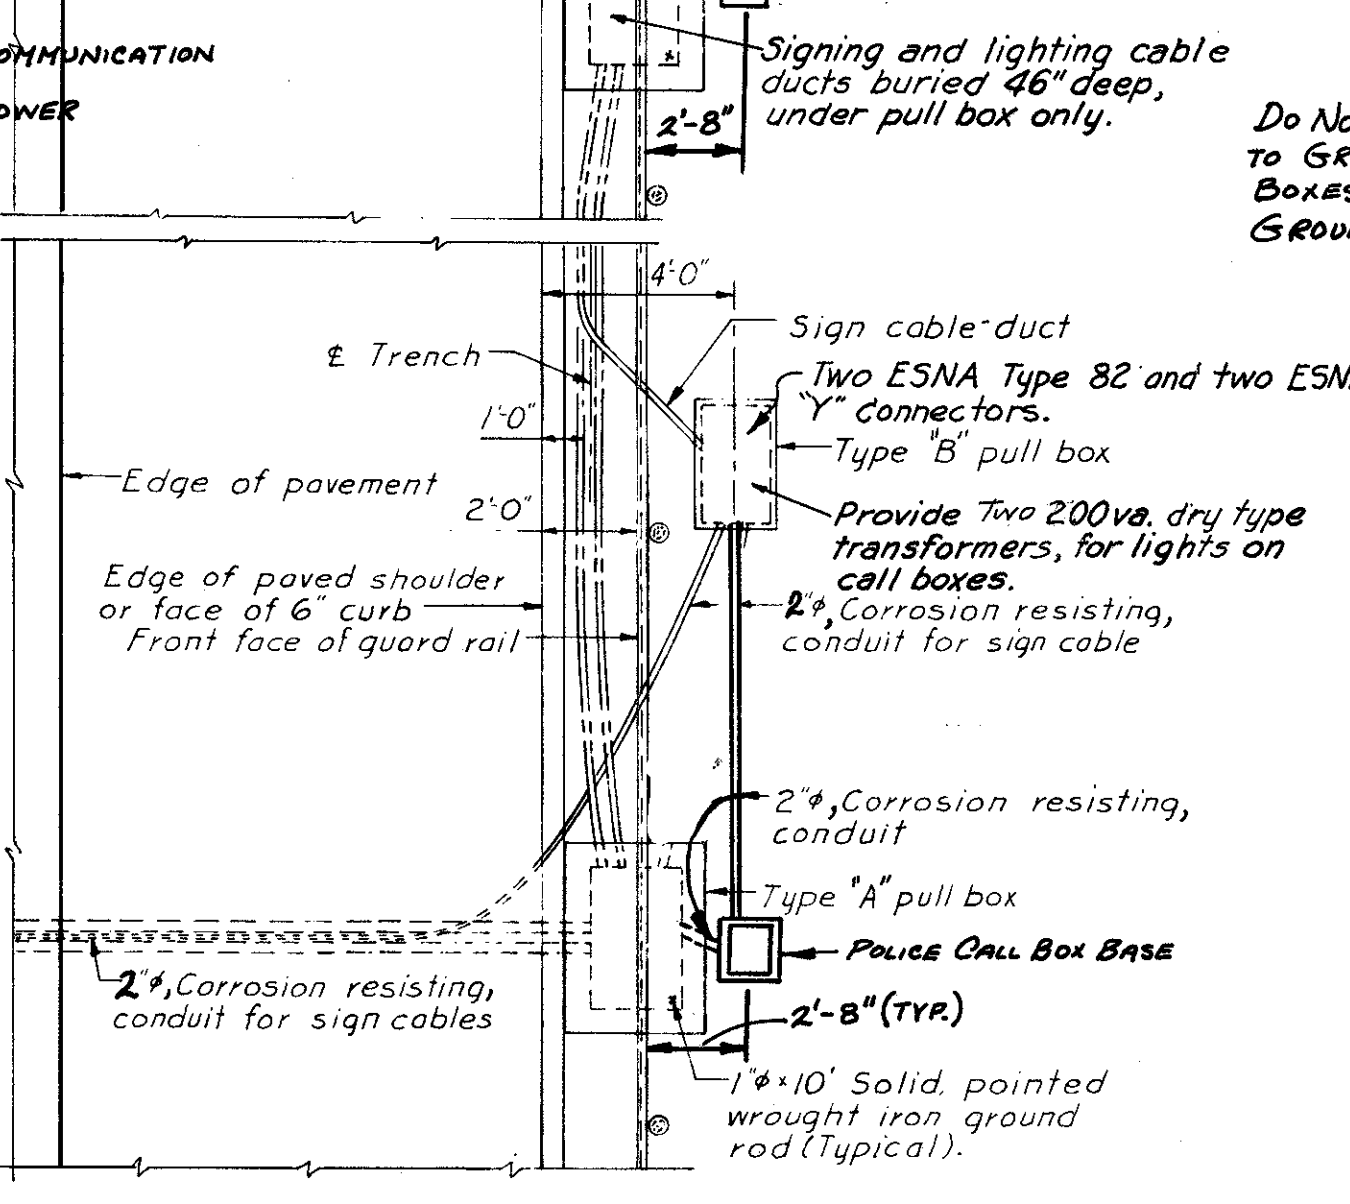 OMMUNICATION
OWER
Signing and lighting cable
ducts buried 46" deep,
under pull box only.
2'-8"
DO NO
TO GR
BOXES
GROU
4'-0"
Sign cable duct
℄ Trench
Two ESNA Type 82 and two ESN
"Y" Connectors.
1'-0"
Type "B" pull box
Edge of pavement
2'-0"
Provide Two 200va. dry type
transformers, for lights on
call boxes.
Edge of paved shoulder
or face of 6" curb
Front face of guard rail
2"ϕ, Corrosion resisting,
conduit for sign cable
2"ϕ, Corrosion resisting,
conduit
Type "A" pull box
POLICE CALL BOX BASE
2"ϕ, Corrosion resisting,
conduit for sign cables
2'-8" (TYP.)
1"ϕ x 10' Solid, pointed
wrought iron ground
rod (Typical).